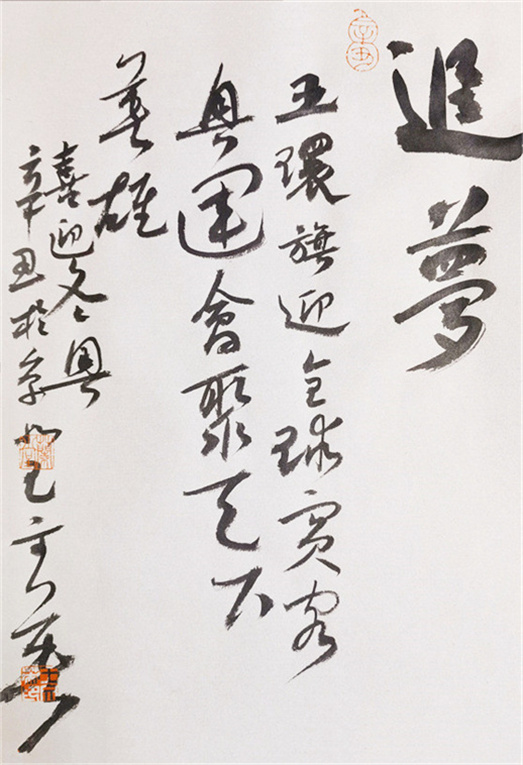 追夢
五環旗迎全球賓客
奧運會聚天下
英雄
喜迎冬奧
辛丑於京